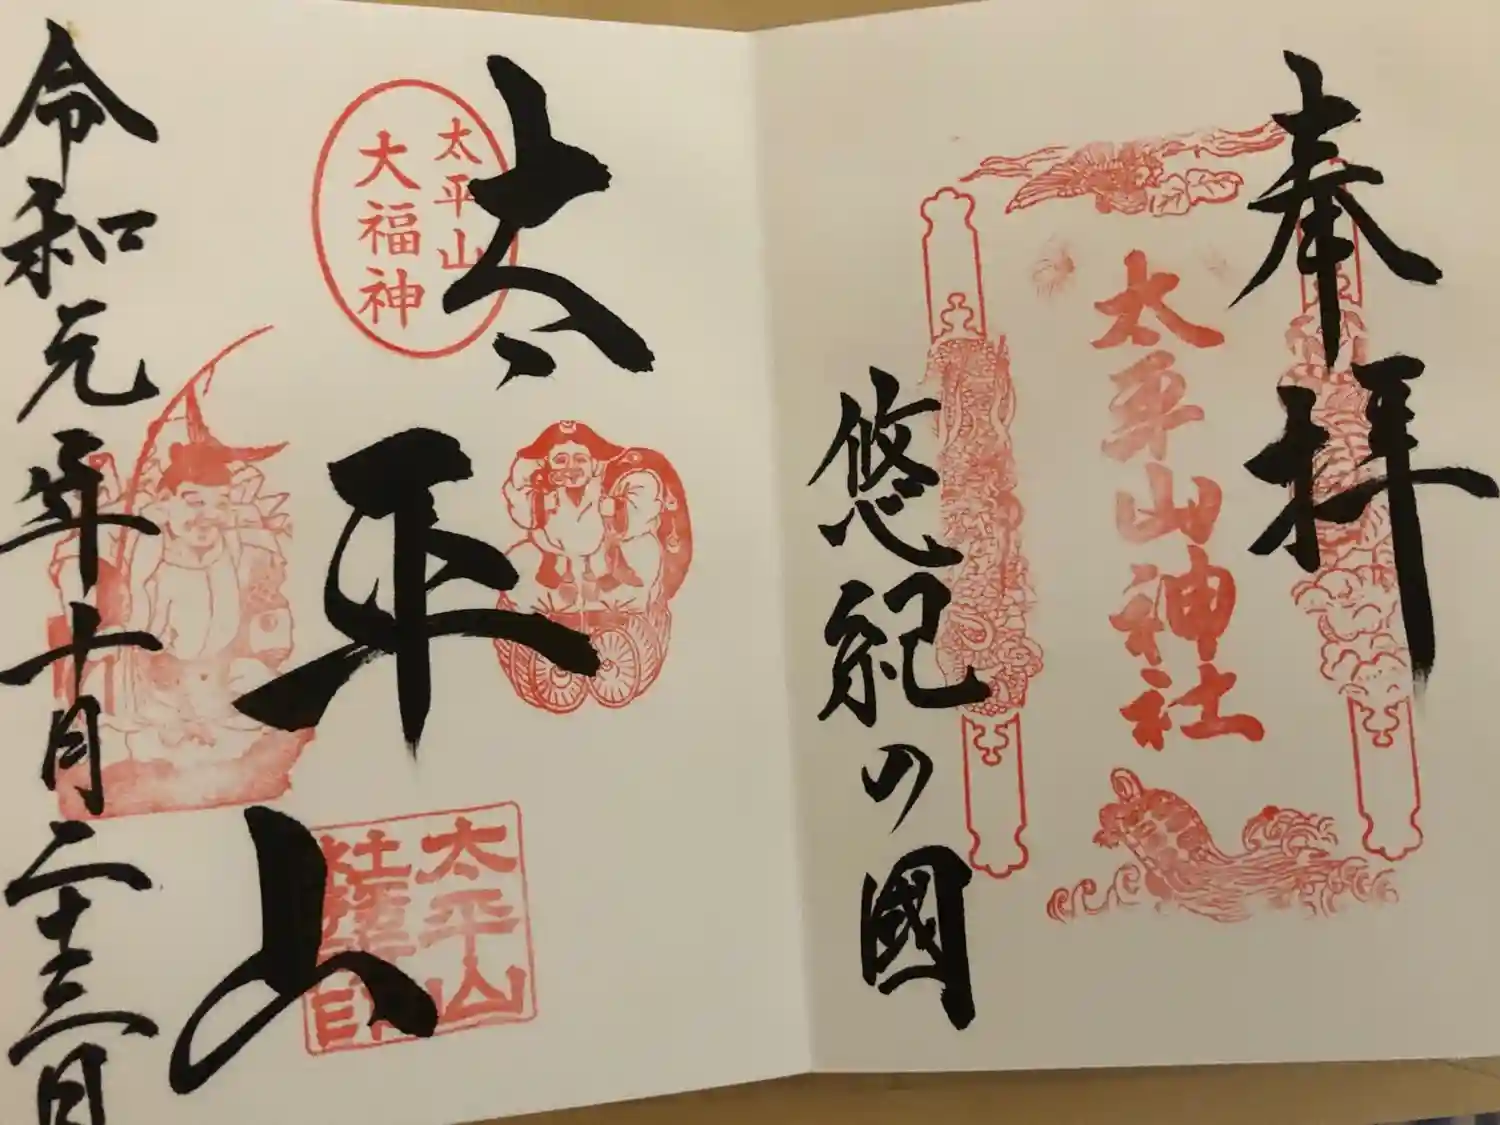 奉拝
太平山神社
悠紀の國
太平山
太平山
大福神
太平山
社務印
令和元年十月二十三日